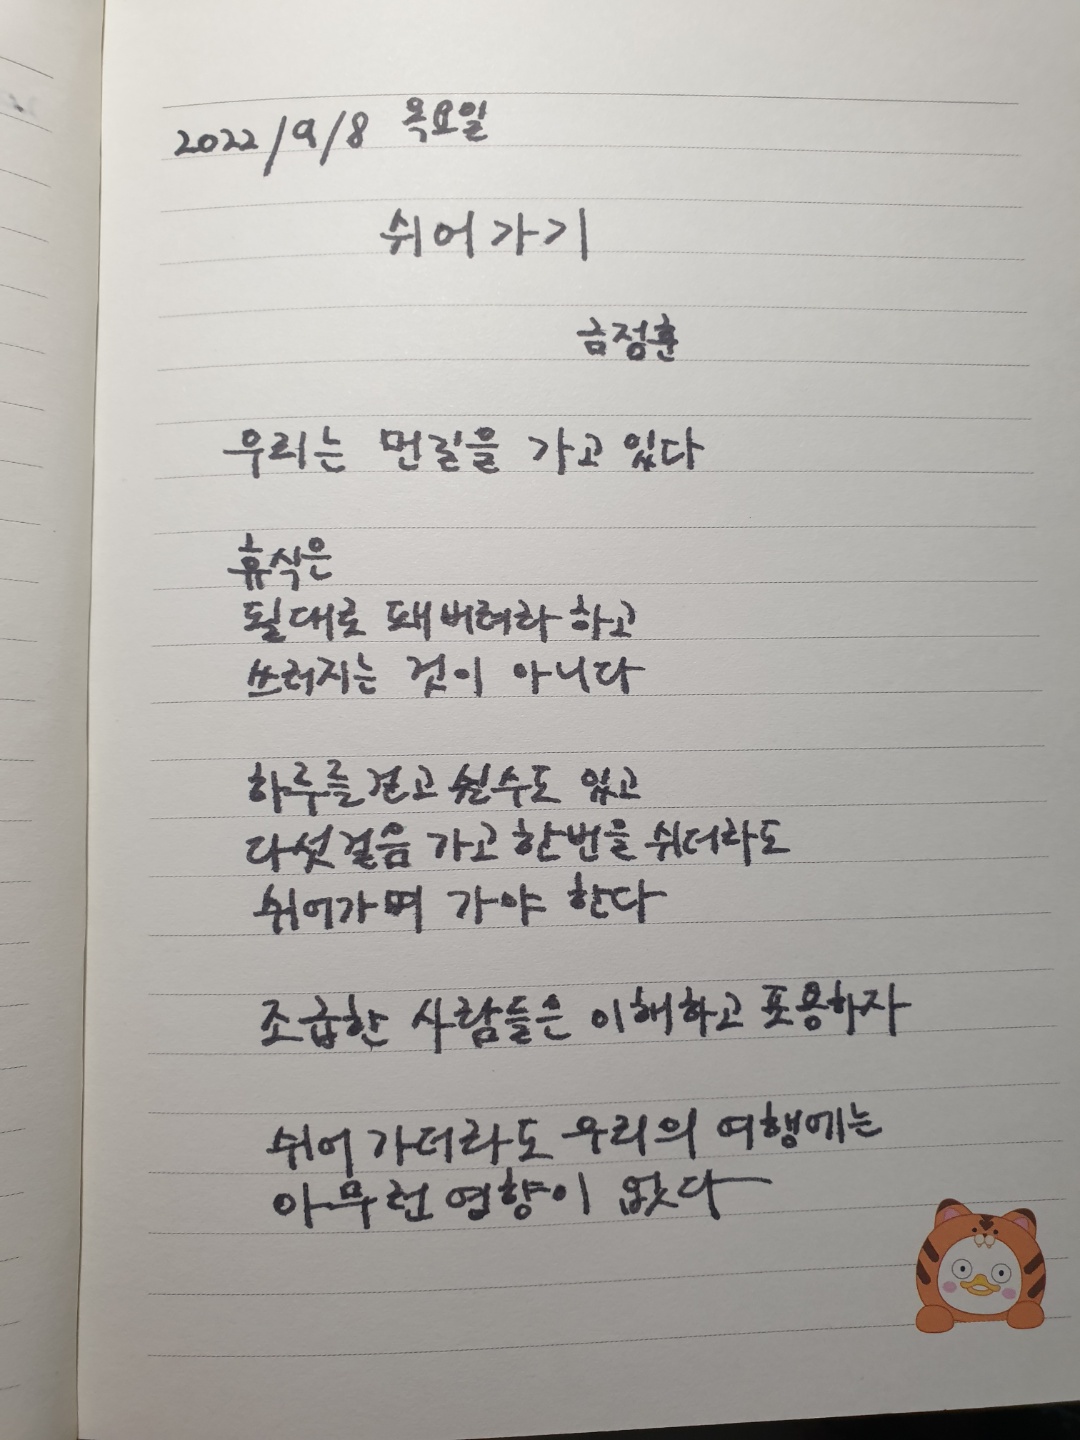 2022/9/8 목요일
쉬어가기
금정훈
우리는 먼길을 가고 있다
휴식은
될대로 돼버려라 하고
쓰러지는 것이 아니다
하루를 걷고 쉴수도 있고
다섯걸음 가고 한번을 쉬더라도
쉬어가며 가야 한다
조급한 사람들은 이해하고 포용하자
쉬어 가더라도 우리의 여행에는
아무런 영향이 없다